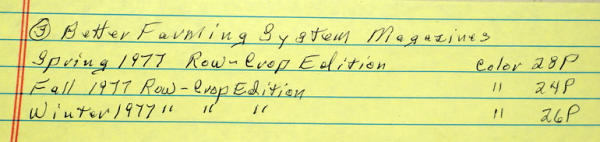 ③ Better Farming System Magazines
Spring 1977 Row-Crop Edition Color 28P
Fall 1977 Row-Crop Edition " 24P
Winter 1977 " " " " 26P